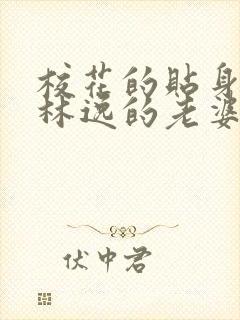 校花的貼身
林逸的老婆
伏中君